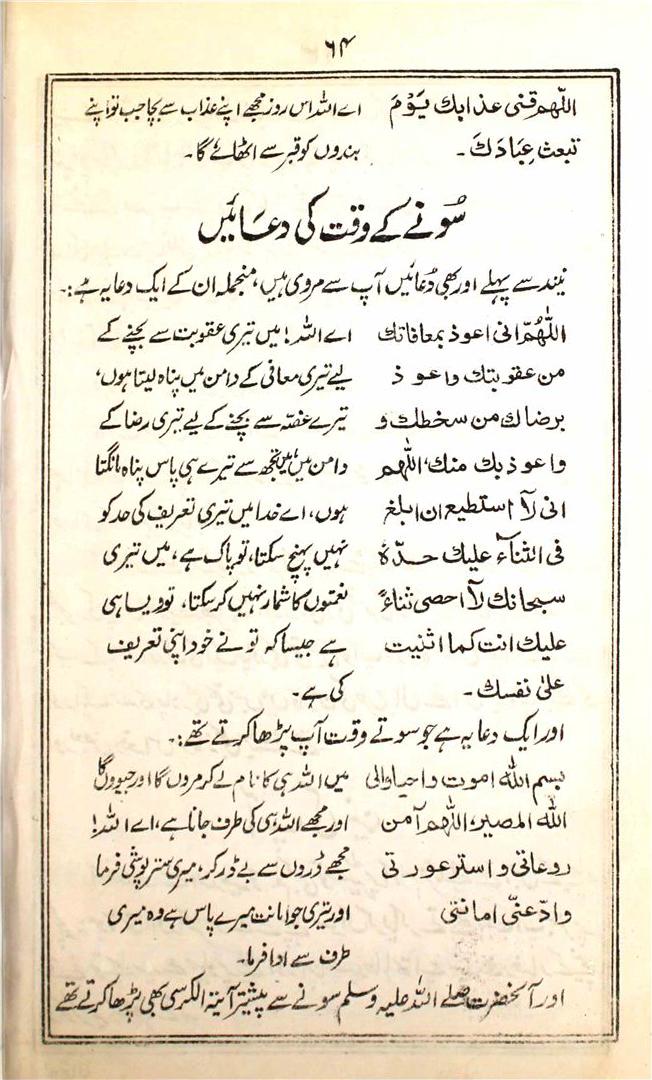 ۶۴
اللّٰهم قنی عذابك یَوْمَ اے اللہ اس روز مجھے اپنے عذاب سے بچا جب تو اپنے
تبعث عِبَادَكَ۔ بندوں کو قبر سے اٹھائے گا۔
سُونے کے وقت کی دعائیں
نیند سے پہلے اور بھی دُعائیں آپ سے مروی ہیں، منجملہ ان کے ایک دعا یہ ہے:۔
اللّٰهُمّ انی اعوذ بمعافاتك اے اللہ! میں تیری عقوبت سے بچنے کے
من عقوبتك واعوذ لیے تیری معافی کے دامن میں پناہ لیتا ہوں،
برضاك من سخطك و تیرے غصّہ سے بچنے کے لیے تیری رضا کے
واعوذ بك منك، اللّٰهم دامن میں، میں تجھ سے تیرے ہی پاس پناہ مانگتا
انی لآ استطیع ان ابلغ ہوں، اے خدا میں تیری تعریف کی حد کو
فی الثنآء علیك حدّہٗ نہیں پہنچ سکتا، تو پاک ہے، میں تیری
سبحانك لآ احصی ثناءً نعمتوں کا شمار نہیں کر سکتا، تو ویسا ہی
علیك انت کما اثنیت ہے جیسا کہ تو نے خود اپنی تعریف
علیٰ نفسك۔ کی ہے۔
اور ایک دعا یہ ہے جو سوتے وقت آپ پڑھا کرتے تھے:۔
بسم اللّٰه اموت واحیا والی میں اللہ ہی کا نام لے کر مروں گا اور جیوں گا
اللّٰه المصیر، اللّٰهم آمن اور مجھے اللہ ہی کی طرف جانا ہے، اے اللہ!
روعاتی واستر عورتی مجھے ڈروں سے بے ڈر کر، میری ستر پوشی فرما
وادّ عنّی امانتی اور تیری جو امانت میرے پاس ہے وہ میری
طرف سے ادا فرما۔
اور آنحضرت صلے اللہ علیہ وسلم سونے سے پیشتر آیتہ الکرسی بھی پڑھا کرتے تھے